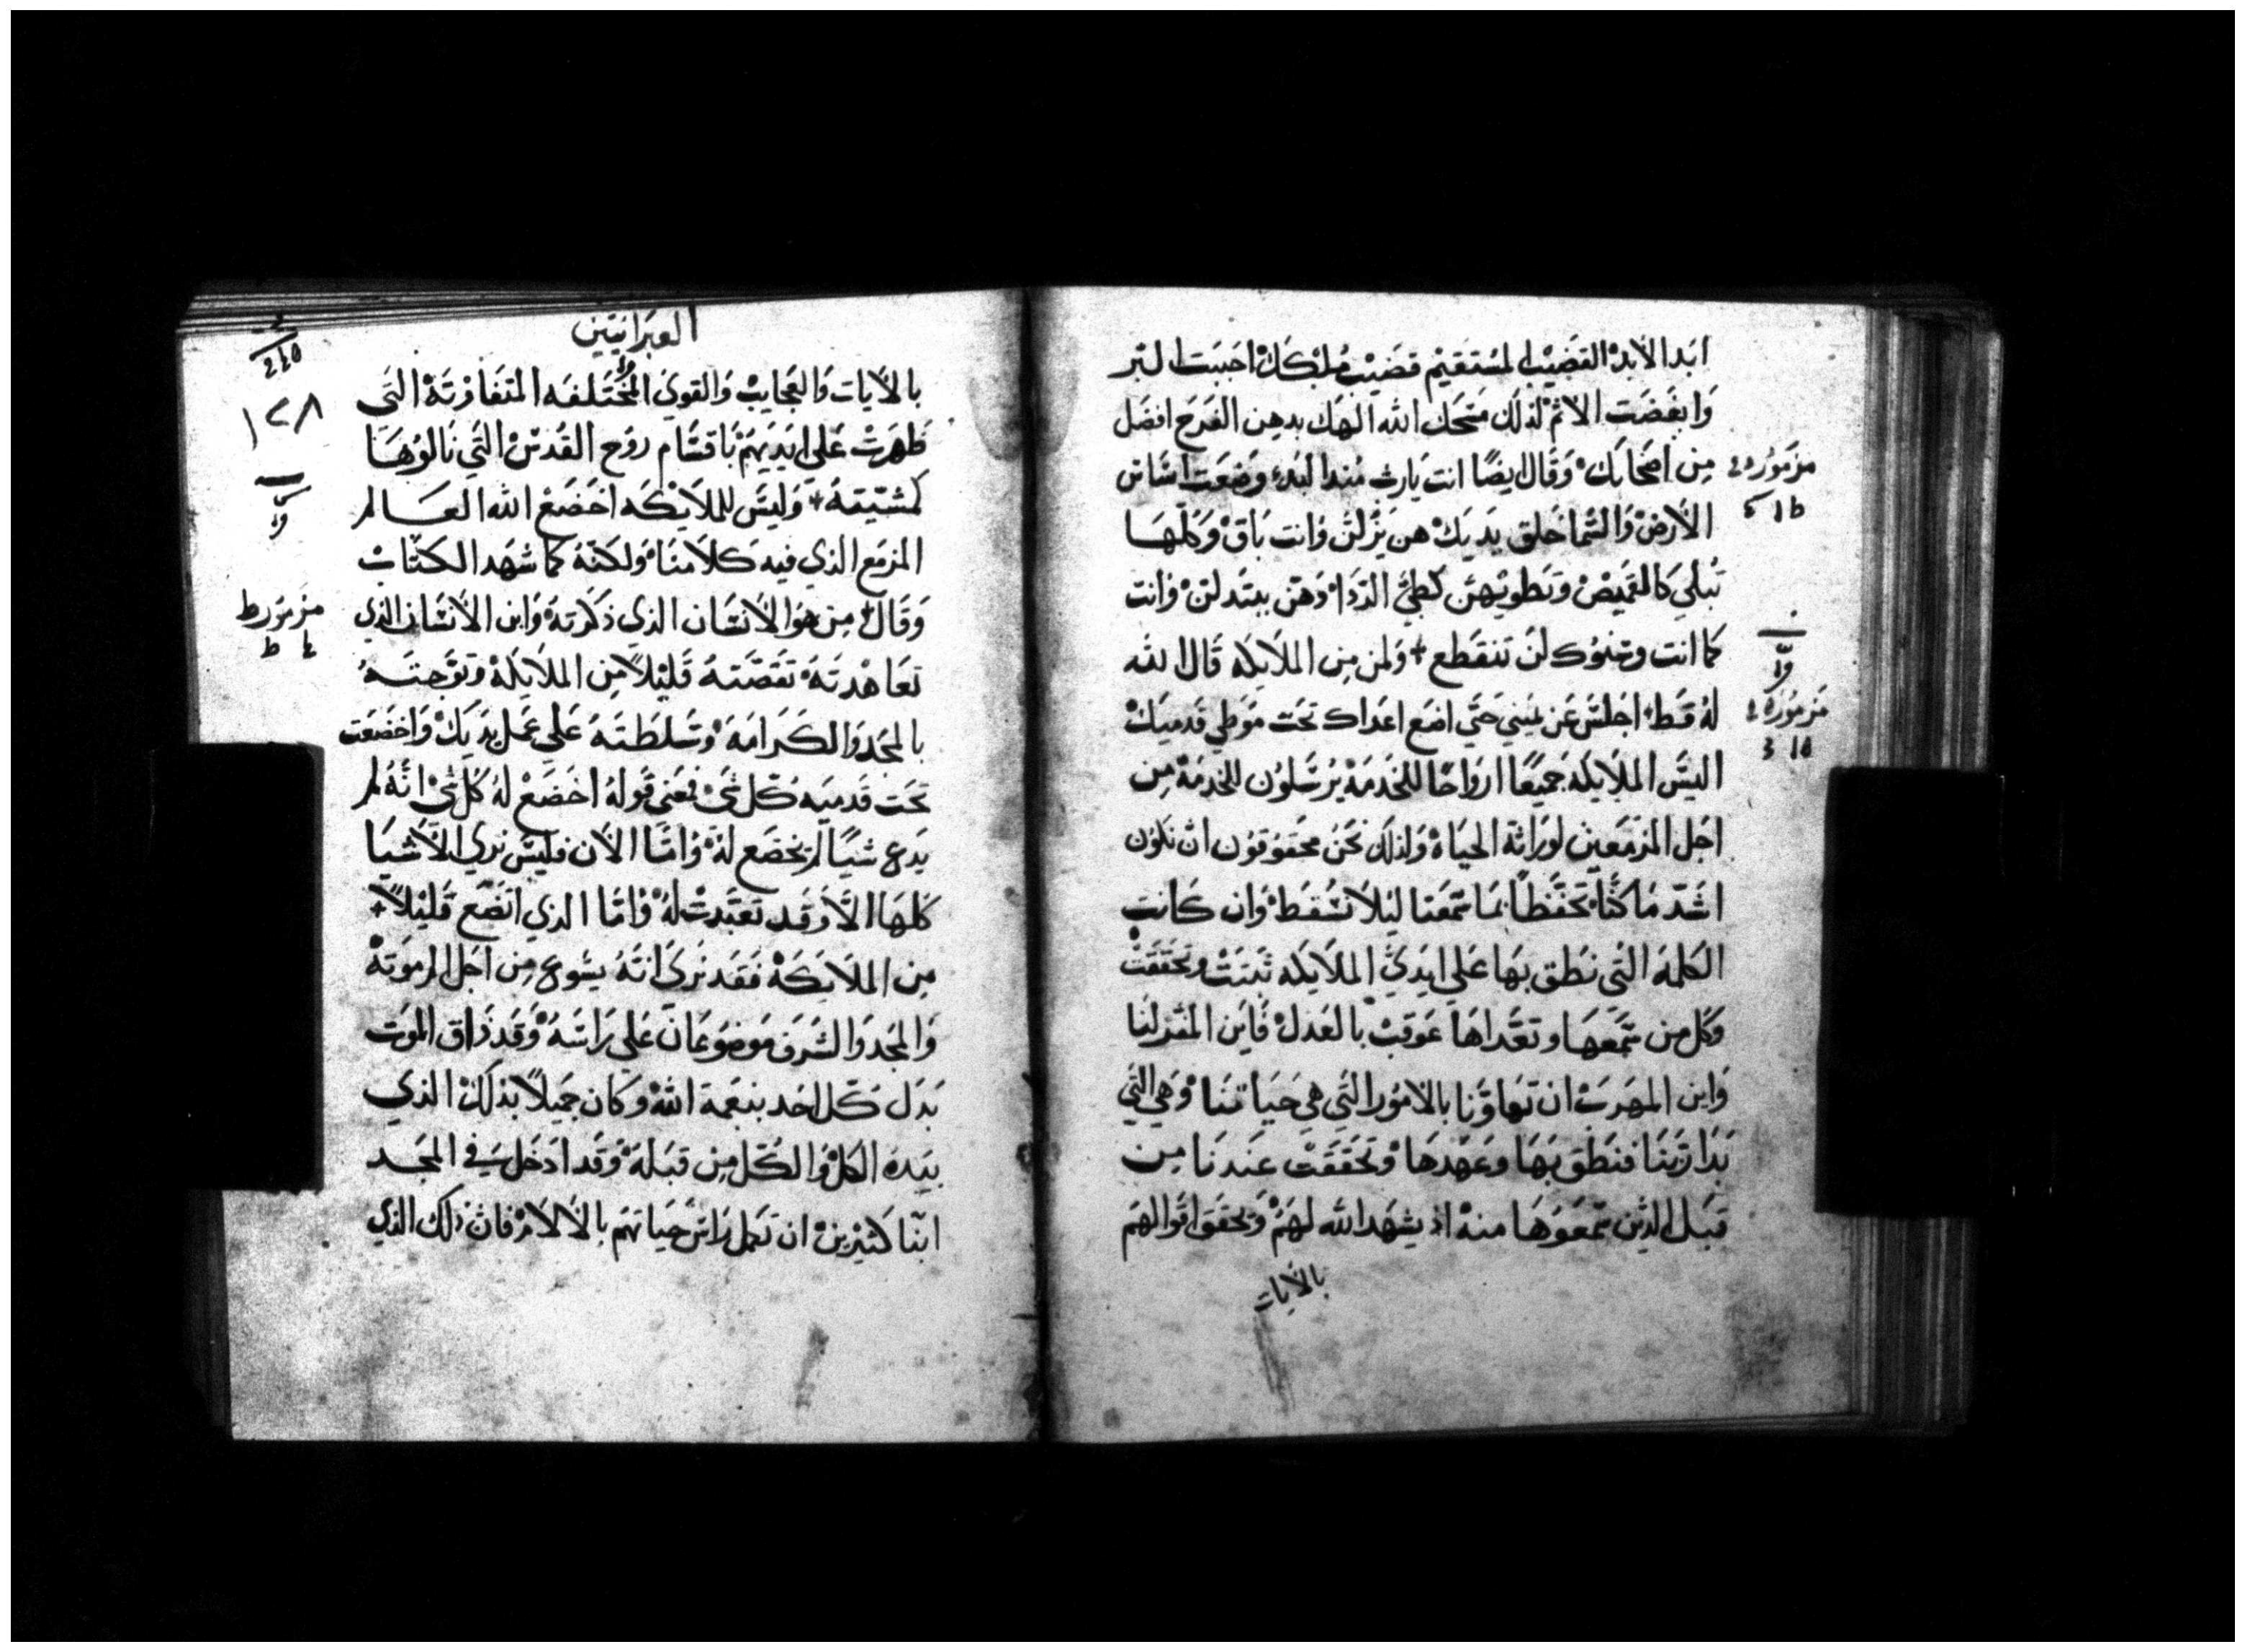 ابدا الابد القضيب المستقيم قضيب ملكك احببت البر
وابغضت الاثم لذلك مسحك الله الهك بدهن الفرح افضل
من اصحابك وقال ايضا انت يارب منذ البدء وضعت اساس
مزمور
الارض والسما خلق يديك هن يزلن وانت باق وكلها
تبلي كالقميص وتطويهن كطي الردا وهن يبتدلن وانت
كما انت وسنوك لن تنقطع ولمن من الملايكه قال الله
له قط اجلس عن يميني حتي اضع اعداك تحت موطي قدميك
مزمور
اليس الملايكه جميعا ارواحا للخدمة يرسلون للخدمة من
اجل المزمعين لوراثة الحياة ولذلك نحن محقوقون ان نكون
اشد ما كنا تحفظا بما سمعنا ليلا نسقط وان كانت
الكلمة التي نطق بها علي ايدي الملايكه ثبتت وتحققت
وكل من سمعها وتعداها عوقب بالعدل فاين المفر لنا
واين المهرب ان تهاونا بالامور التي هي حياتنا وهي التي
بدا ربنا فنطق بها وعهدها وتحققت عندنا من
قبل الذين سمعوها منه اذ يشهد الله لهم وتحقق اقوالهم
بالايات
العبرانيين
بالايات والعجايب والقوي المختلفه المتفاوتة التي
١٢٨
ظهرت علي ايديهم باقسام روح القدس التي نالوها
كمشيته وليس للملايكه اخضع الله العالم
المزمع الذي فيه كلامنا ولكنه كما شهد الكتاب
وقال من هو الانسان الذي ذكرته وابن الانسان الذي
مزمور ط
تعاهدته نقصته قليلا من الملايكة وتوجته
بالمجد والكرامة وسلطته علي عمل يديك واخضعت
تحت قدميه كل شي فمعني قوله اخضع له كل شي انه لم
يدع شيا لم يخضع له واما الان فليس نري الاشيا
كلها الا وقد تعبدت له واما الذي اتضع قليلا
من الملايكة فقد نري انه يشوع من اجل الم موته
والمجد والشرف موضوعان علي راسه وقد ذاق الموت
بدل كل احد بنعمة الله وكان جميلا بذلك الذي
بيده الكل والكل من قبله وقد ادخل في المجد
ابنا كثيرين ان تكمل راس حياتهم بالالام فان ذلك الذي